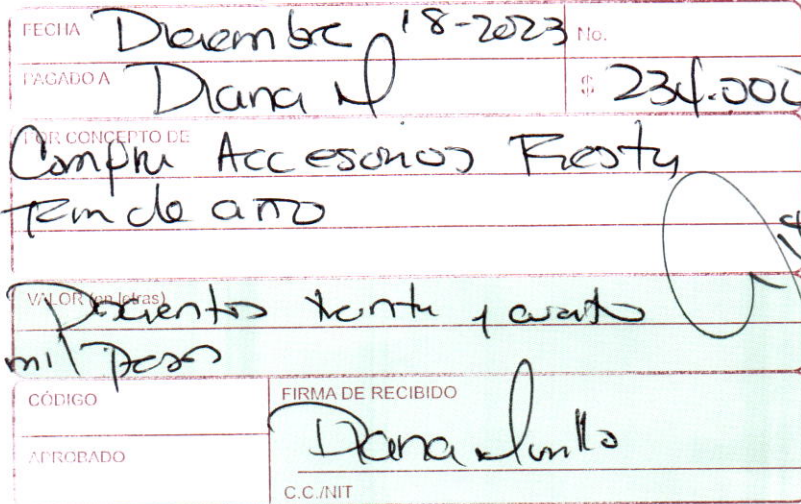 FECHA Diciembre 18-2023 No.
PAGADO A Diana M $ 234.000
POR CONCEPTO DE
Compra Accesorios Fiesta
Fin de año
VALOR (en letras)
Doscientos treinta y cuatro
mil pesos
CÓDIGO FIRMA DE RECIBIDO
Diana Murillo
APROBADO
C.C./NIT